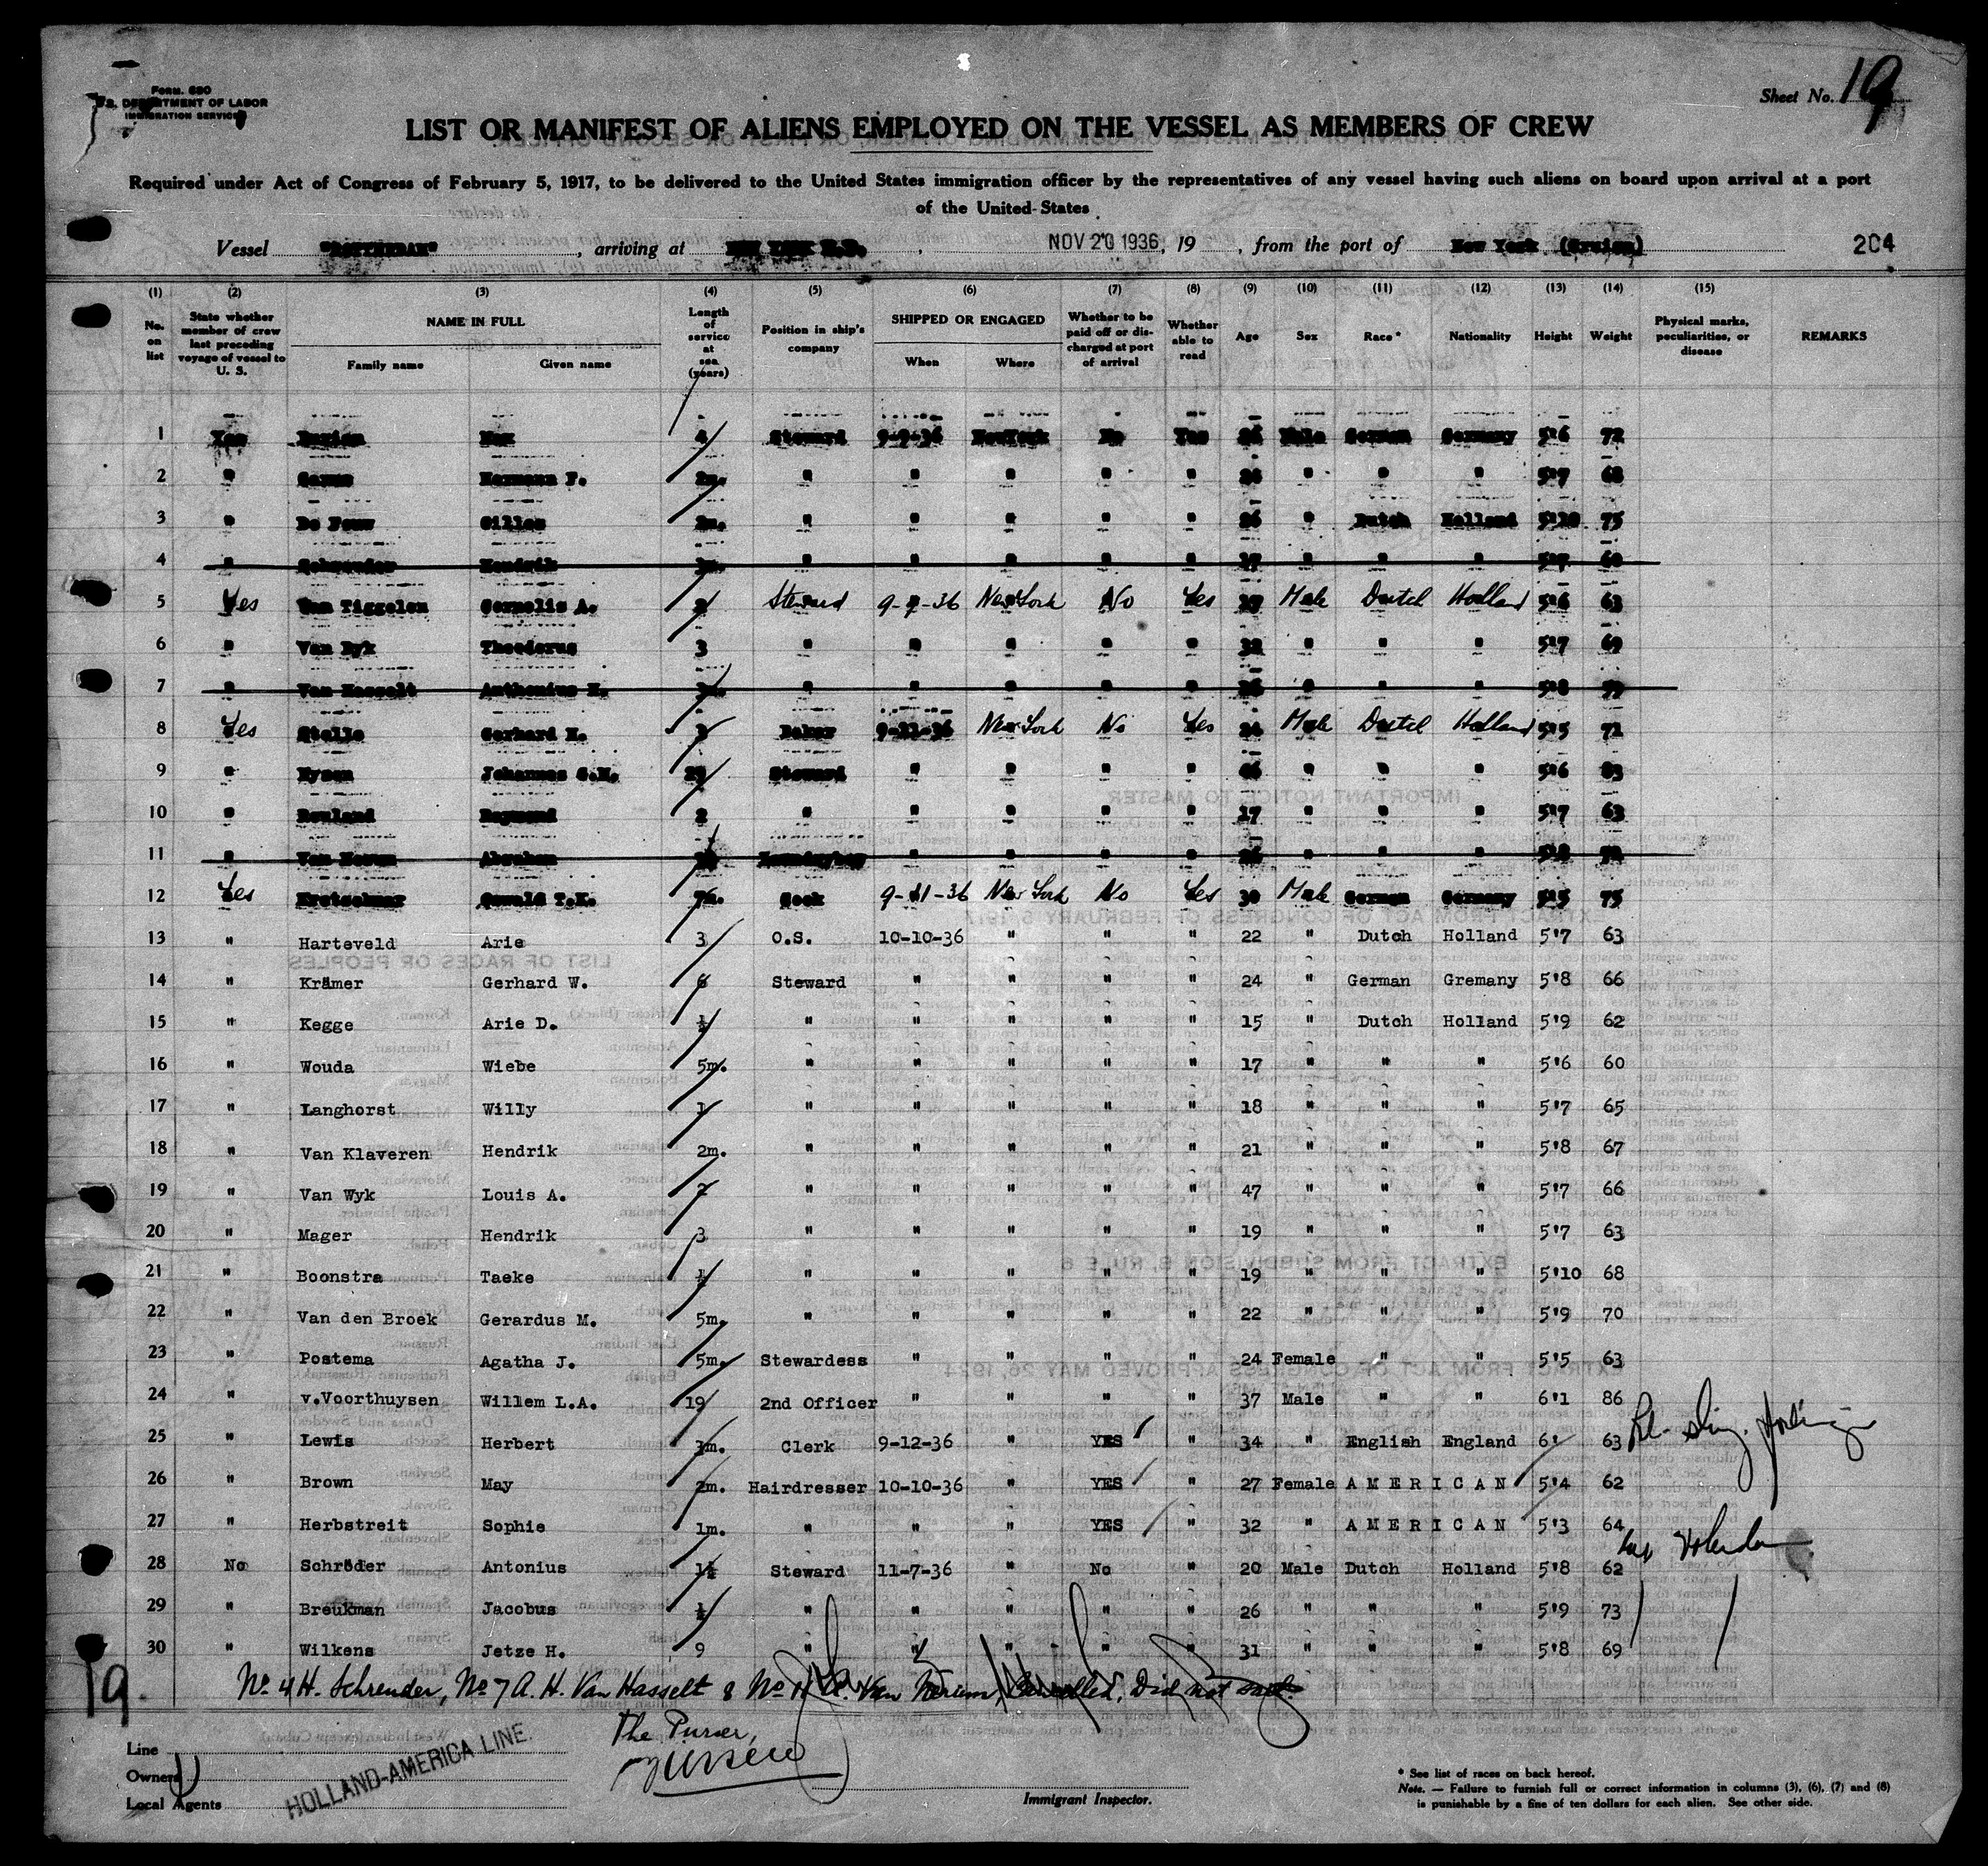 Form. 680
U.S. DEPARTMENT OF LABOR
IMMIGRATION SERVICE
Sheet No. 19
LIST OR MANIFEST OF ALIENS EMPLOYED ON THE VESSEL AS MEMBERS OF CREW
Required under Act of Congress of February 5, 1917, to be delivered to the United States immigration officer by the representatives of any vessel having such aliens on board upon arrival at a port
of the United States
Vessel "ROTTERDAM", arriving at NEW YORK N.Y., NOV 20 1936, 19 , from the port of New York (Cruise) 204
(1) (2) (3) (4) (5) (6) (7) (8) (9) (10) (11) (12) (13) (14) (15)
No. on list State whether member of crew last preceding voyage of vessel to U. S. NAME IN FULL Family name Given name Length of service at sea (years) Position in ship's company SHIPPED OR ENGAGED When Where Whether to be paid off or discharged at port of arrival Whether able to read Age Sex Race * Nationality Height Weight Physical marks, peculiarities, or disease REMARKS
1 Yes Max 4 Steward 9-9-36 NewYork No Yes 26 Male German Germany 5'6 72
2 " Hermann F. 2m. " " " " " 26 " " " 5'7 68
3 " De Fouw Gilles 2m. " " " " " 26 " Dutch Holland 5'10 75
4 " Schreuder Hendrik " " " " " " " " 5'7 60
5 Yes Van Tiggelen Cornelis A. Steward 9-9-36 New York No Yes Male Dutch Holland 5'6 63
6 " Van Dyk Theodorus 3 " " " " " 32 " " " 5'7 69
7 " Van Hasselt Anthonius H. " " " " " " " " 5'8
8 Yes Stolle Gerhard H. Baker 9-11-36 New York No Yes 24 Male Dutch Holland 5'5 71
9 " Johannes C.H. Steward " " " " 46 " " " 5'6 83
10 " Rouland Raymond 2 " " " " " 17 " " " 5'7 63
11 " Abraham " " " " " " "
12 Yes Kretschmar Oswald T.K. 7m. Cook 9-11-36 New York No Yes 30 Male German Germany 5'5 75
13 " Harteveld Arie 3 O.S. 10-10-36 " " " 22 " Dutch Holland 5'7 63
14 " Krämer Gerhard W. 6 Steward " " " " 24 " German Gremany 5'8 66
15 " Kegge Arie D. ½ " " " " " 15 " Dutch Holland 5'9 62
16 " Wouda Wiebe 5m. " " " " " 17 " " " 5'6 60
17 " Langhorst Willy 1 " " " " " 18 " " " 5'7 65
18 " Van Klaveren Hendrik 2m. " " " " " 21 " " " 5'8 67
19 " Van Wyk Louis A. 7 " " " " " 47 " " " 5'7 66
20 " Mager Hendrik 3 " " " " " 19 " " " 5'7 63
21 " Boonstra Taeke ½ " " " " " 19 " " " 5'10 68
22 " Van den Broek Gerardus M. 5m. " " " " " 22 " " " 5'9 70
23 " Postema Agatha J. 5m. Stewardess " " " " 24 Female " " 5'5 63
24 " v.Voorthuysen Willem L.A. 19 2nd Officer " " " " 37 Male " " 6'1 86
25 " Lewis Herbert 3m. Clerk 9-12-36 " YES " 34 " English England 6' 63
26 " Brown May 2m. Hairdresser 10-10-36 " YES " 27 Female AMERICAN 5'4 62
27 " Herbstreit Sophie 1m. " " " YES " 32 " AMERICAN 5'3 64
28 No Schröder Antonius 1½ Steward 11-7-36 " No " 20 Male Dutch Holland 5'8 62
29 " Breukman Jacobus ½ " " " " " 26 " " " 5'9 73
30 " Wilkens Jetze H. 9 " " " " " 31 " " " 5'8 69
19. No 4 H. Schreuder, No 7 A. H. Van Hasselt & No 11 A. Van Cancelled, Did not sail.
The Purser,
Line
Owners
Local Agents
HOLLAND-AMERICA LINE.
Immigrant Inspector.
* See list of races on back hereof.
Note. — Failure to furnish full or correct information in columns (3), (6), (7) and (8)
is punishable by a fine of ten dollars for each alien. See other side.